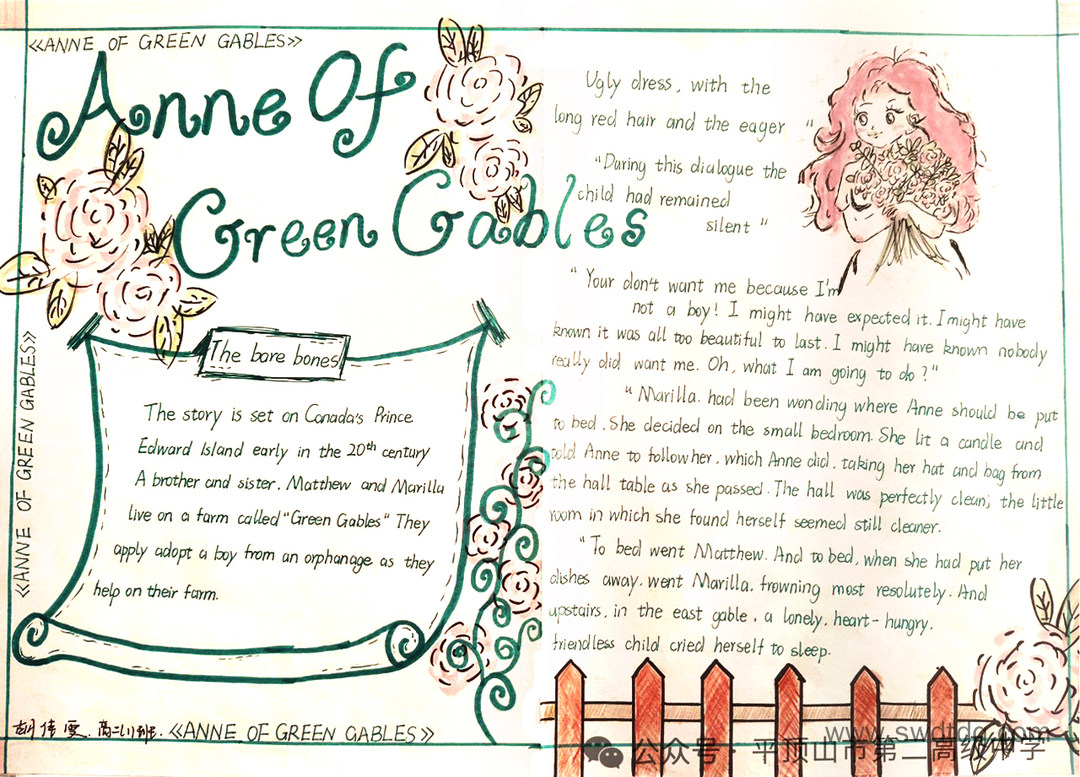 《ANNE OF GREEN GABLES》
Anne Of
Green Gables
《ANNE OF GREEN GABLES》
The bare bones
The story is set on Canada's Prince
Edward Island early in the 20th century
A brother and sister. Matthew and Marilla
live on a farm called "Green Gables" They
apply adopt a boy from an orphanage as they
help on their farm.
Ugly dress, with the
long red hair and the eager "
"During this dialogue the
child had remained
silent "
" Your don't want me because I'm
not a boy! I might have expected it. I might have
known it was all too beautiful to last. I might have known nobody
really did want me. Oh, what I am going to do ? "
" Marilla. had been wonding where Anne should be put
to bed. She decided on the small bedroom. She lit a candle and
told Anne to follow her, which Anne did, taking her hat and bag from
the hall table as she passed. The hall was perfectly clean; the little
room in which she found herself seemed still cleaner.
"To bed went Matthew. And to bed, when she had put her
dishes away. went Marilla. frowning most resolutely. And
upstairs, in the east gable, a lonely, heart-hungry.
friendless child cried herself to sleep.
高二 班. 《ANNE OF GREEN GABLES》
www.swdtdq.com
公众号 · 平顶山市第二高级中学